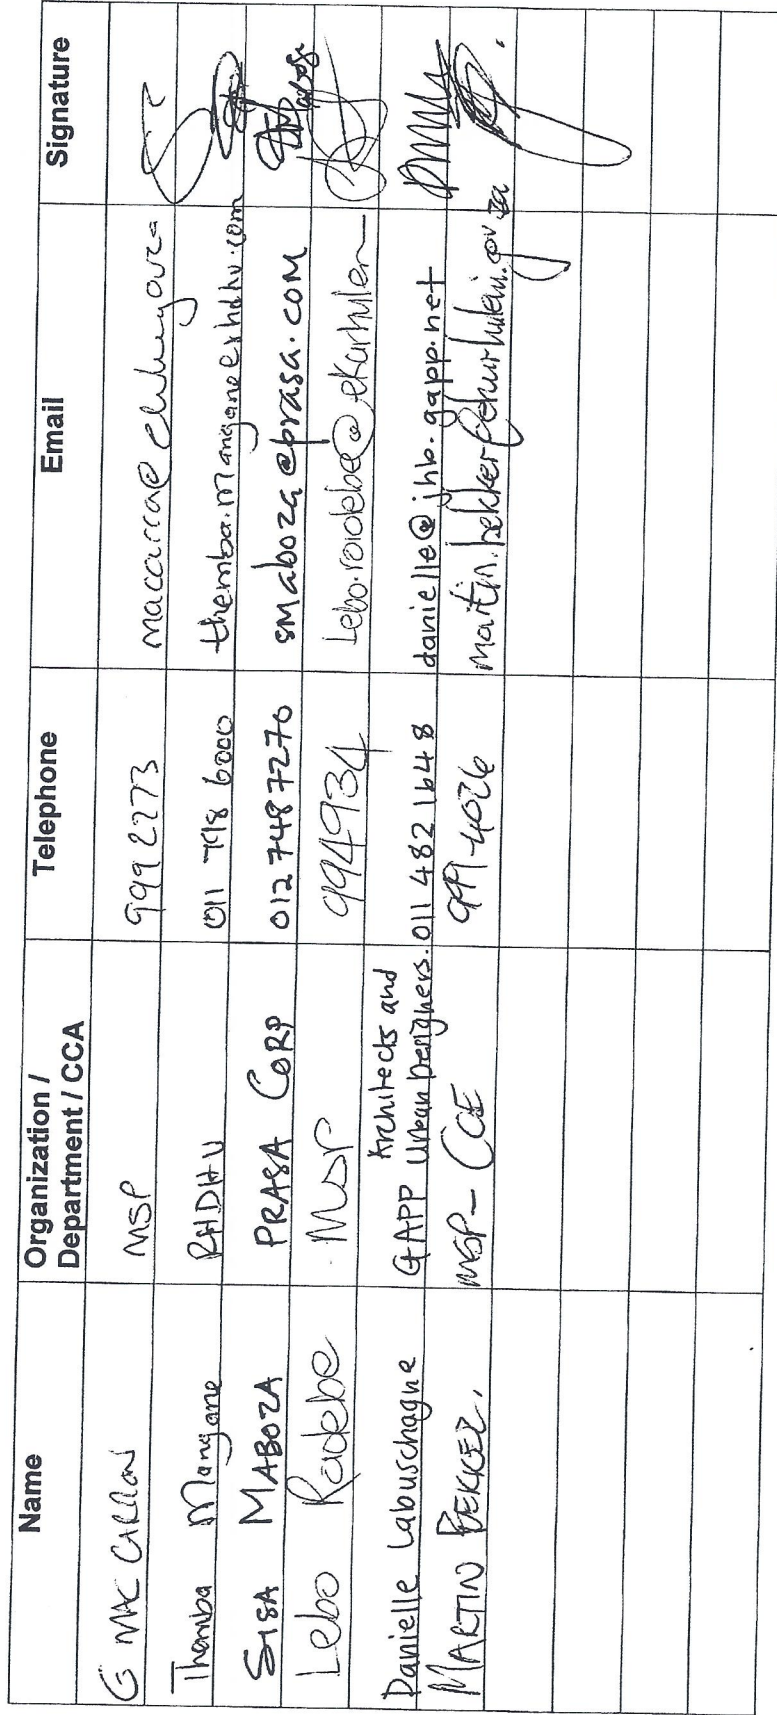 Name Organization / Department / CCA Telephone Email Signature
G MAC CARRON MSP 999 2273
Themba Mangane RHDHV 011 798 6000 themba.mangane@rhdhv.com
SISA MABOZA PRASA CORP 012 748 7270 smaboza@prasa.com
Lebo Radebe MSP 994934 Lebo.radebe@ekurhulen
Danielle Labuschagne GAPP Architects and Urban Designers. 011 482 1648 danielle@jhb.gapp.net
MARTIN BEKKER. MSP - CCE 999-4026 martin.bekker@ekurhuleni.gov.za